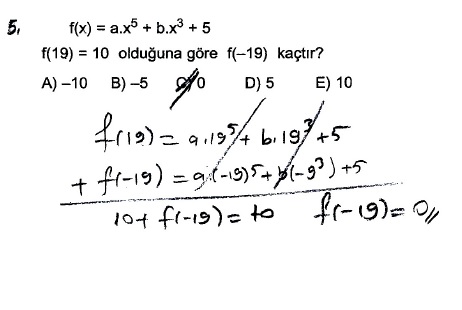 5. f(x) = a.x⁵ + b.x³ + 5
f(19) = 10 olduğuna göre f(–19) kaçtır?
A) –10 B) –5 C) 0 D) 5 E) 10
f(19) = a.19⁵ + b.19³ + 5
+ f(-19) = a.(-19)⁵ + b(-9³) + 5
10 + f(-19) = 10 f(-19) = 0//